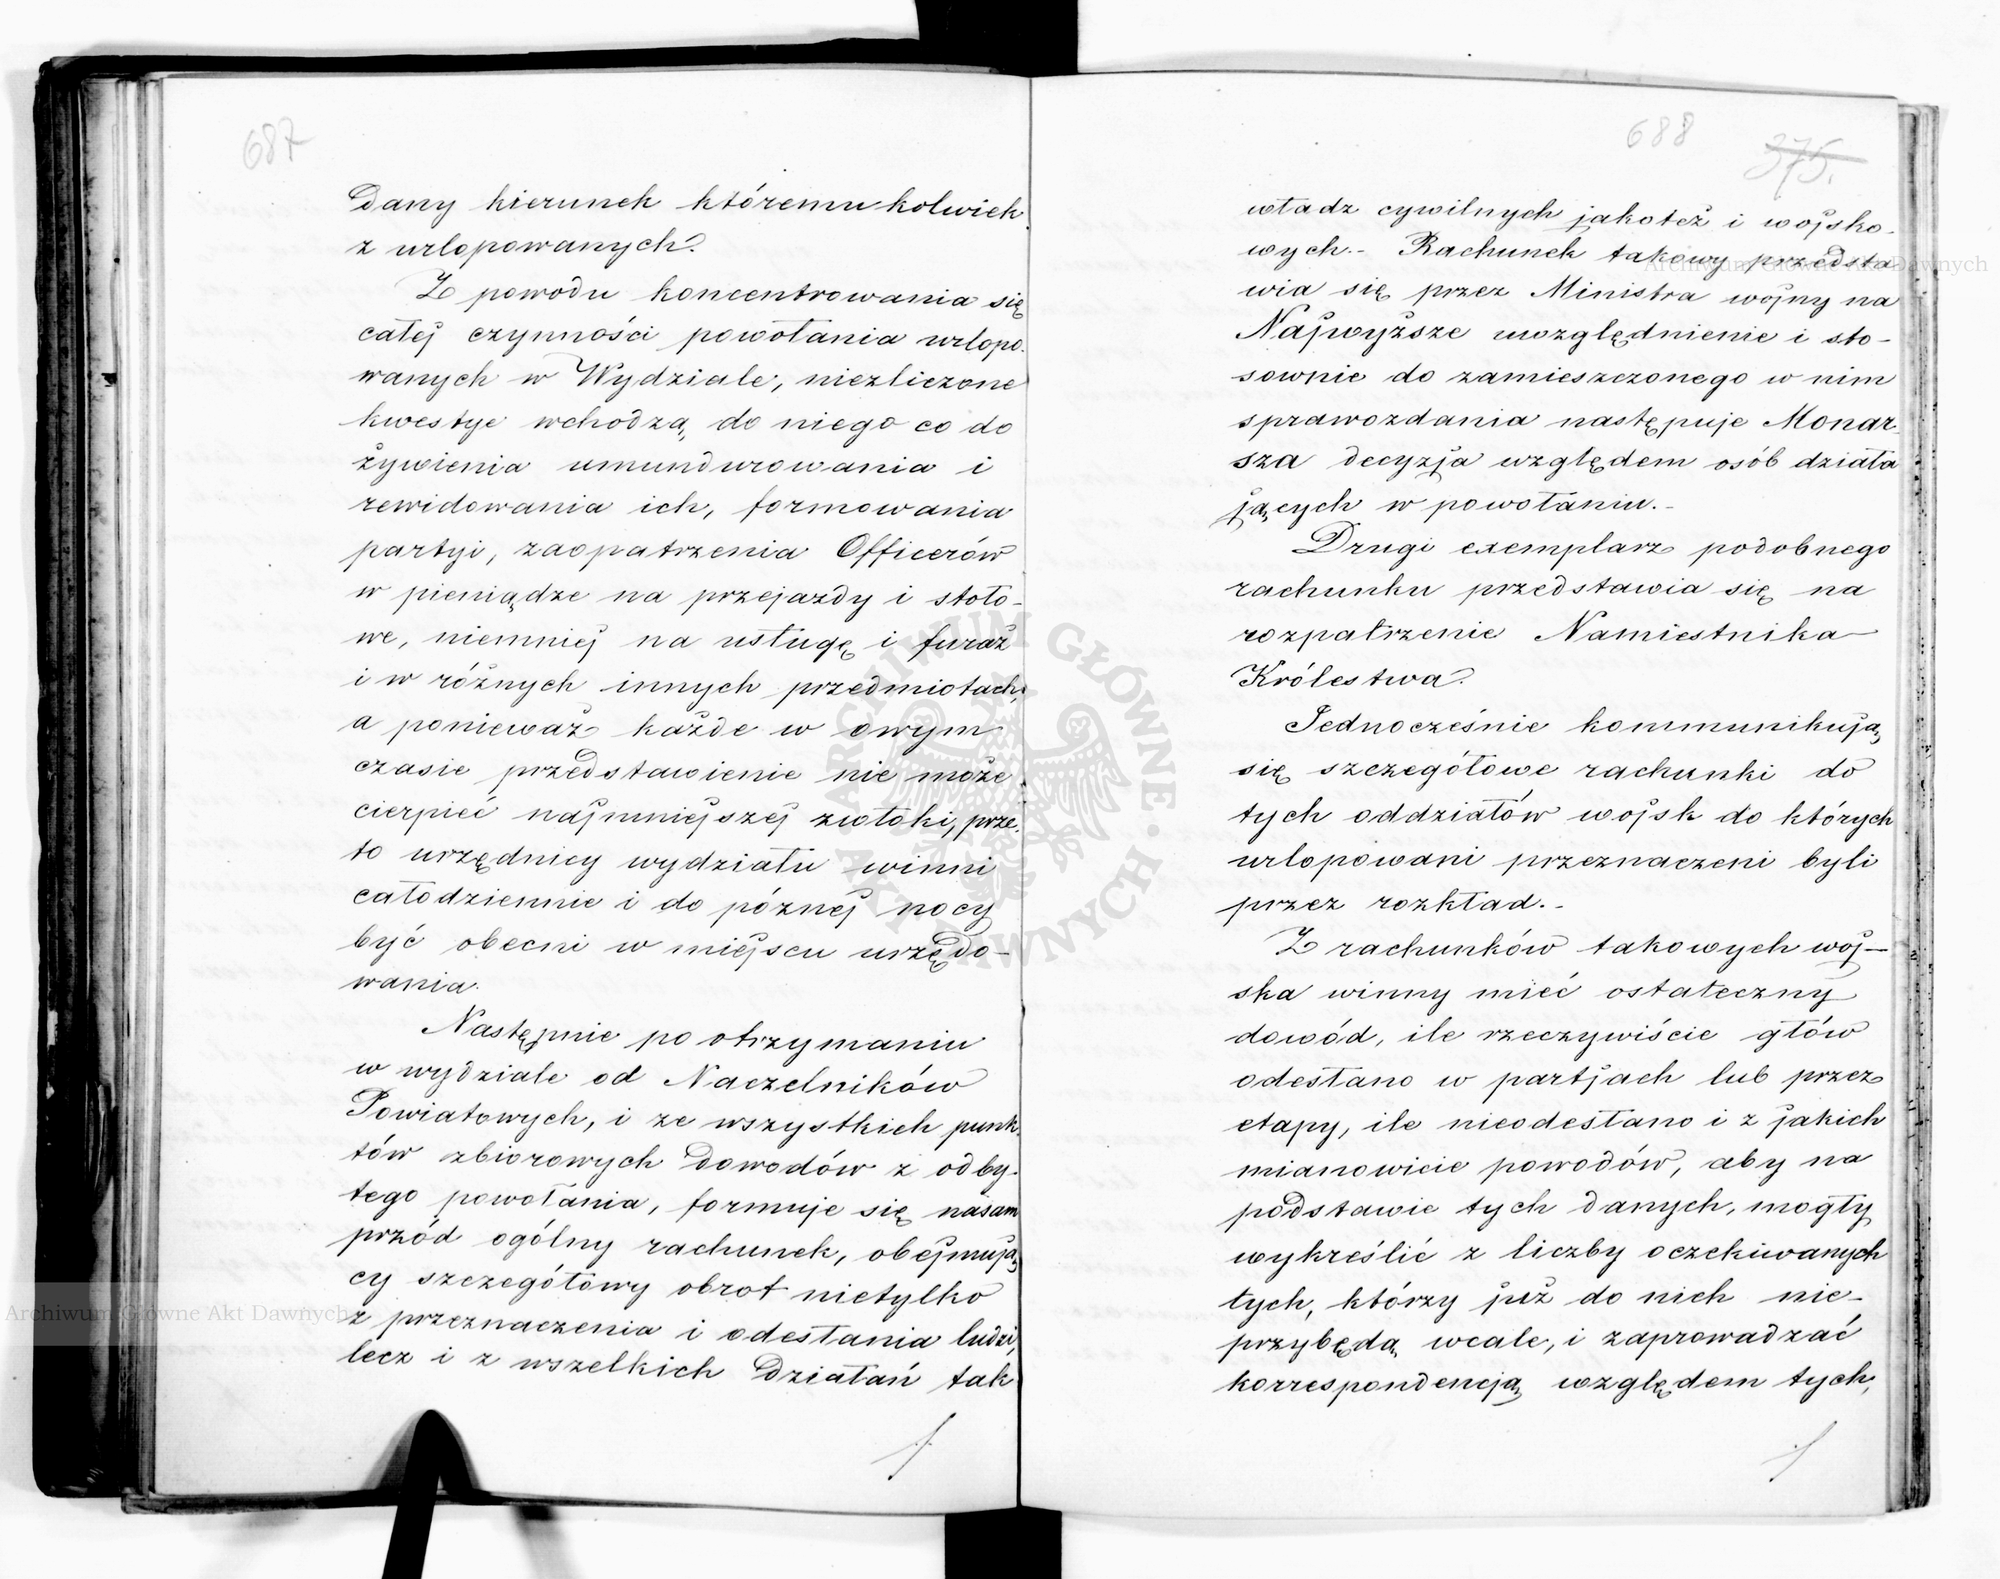 687
Dany kierunek któremukolwiek
z urlopowanych.
Z powodu koncentrowania się
całej czynności powołania urlopo-
wanych w Wydziale, niezliczone
kwestye wchodzą do niego co do
żywienia umundurowania i
rewidowania ich, formowania
partyi, zaopatrzenia Officerów
w pieniądze na przejazdy i stoło-
we, niemniej na usługę i furaż
i w różnych innych przedmiotach,
a ponieważ każde w owym
czasie przedstawienie nie może
cierpieć najmniejszej zwłoki, prze-
to urzędnicy wydziału winni
całodziennie i do późnej nocy
być obecni w miejscu urzędo-
wania.
Następnie po otrzymaniu
w wydziale od Naczelników
Powiatowych, i ze wszystkich punk-
tów zbiorowych dowodów z odby-
tego powołania, formuje się nasam
przód ogólny rachunek, obejmują
cy szczegółowy obrot nietylko
z przeznaczenia i odesłania ludzi,
lecz i z wszelkich działań tak
688
375.
władz cywilnych jakoteż i wojsko-
wych.- Rachunek takowy przedsta
wia się przez Ministra wojny na
Najwyższe uwzględnienie i sto-
sownie do zamieszczonego w nim
sprawozdania następuje Monar-
sza decyzja względem osób działa
jących w powołaniu.-
Drugi exemplarz podobnego
rachunku przedstawia się na
rozpatrzenie Namiestnika
Królestwa.
Jednocześnie kommunikują
się szczegółowe rachunki do
tych oddziałów wojsk do których
urlopowani przeznaczeni byli
przez rozkład.-
Z rachunków takowych woj-
ska winny mieć ostateczny
dowód, ile rzeczywiście głów
odesłano w partjach lub przez
etapy, ile nieodesłano i z jakich
mianowicie powodów, aby na
podstawie tych danych, mogły
wykreślić z liczby oczekiwanych
tych, którzy już do nich nie-
przybędą wcale, i zaprowadzać
korrespondencją względem tych,
Archiwum Główne Akt Dawnych
Archiwum Główne Akt Dawnych
ARCHIWUM GŁÓWNE AKT DAWNYCH